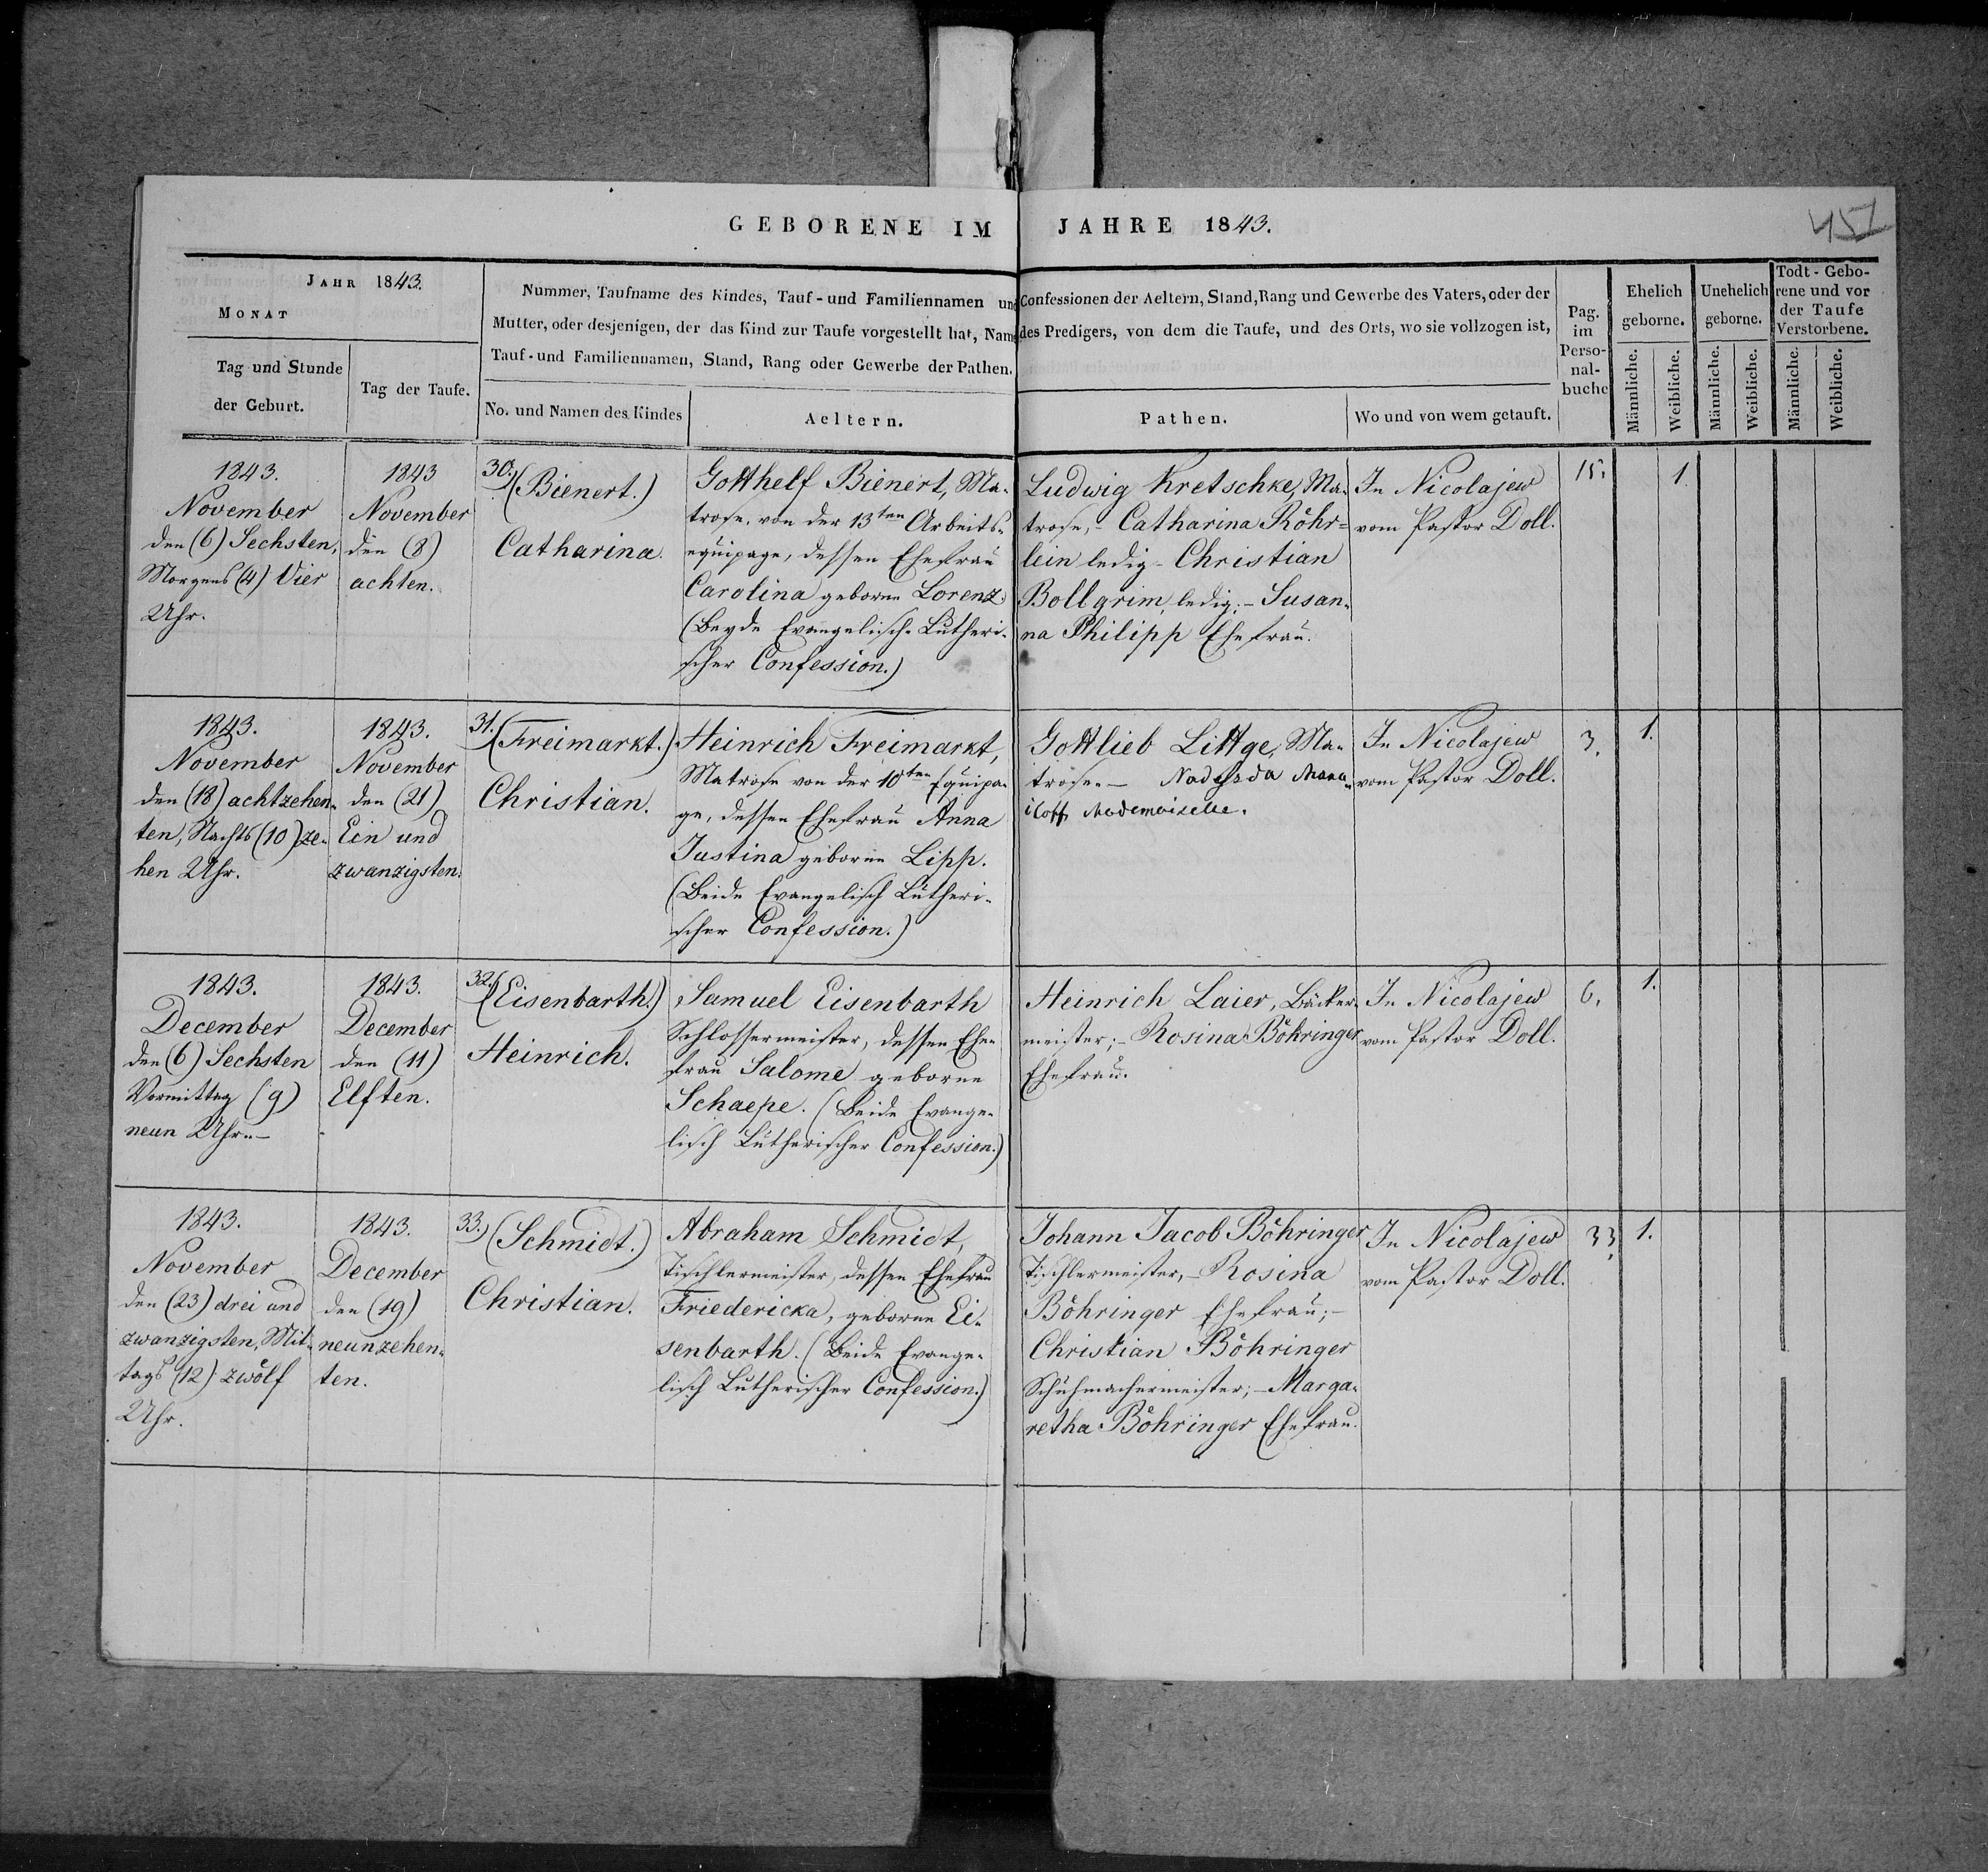 GEBORENE IM JAHRE 1843.
451
JAHR 1843.
MONAT
Tag und Stunde
der Geburt.
Tag der Taufe.
Nummer, Taufname des Kindes, Tauf- und Familiennamen und Confessionen der Aeltern, Stand, Rang und Gewerbe des Vaters, oder der
Mutter, oder desjenigen, der das Kind zur Taufe vorgestellt hat, Name des Predigers, von dem die Taufe, und des Orts, wo sie vollzogen ist,
Tauf- und Familiennamen, Stand, Rang oder Gewerbe der Pathen.
No. und Namen des Kindes
Aeltern.
Pathen.
Wo und von wem getauft.
Pag.
im
Perso-
nal-
buche
Ehelich
geborne.
Unehelich
geborne.
Todt-Gebo-
rene und vor
der Taufe
Verstorbene.
Männliche.
Weibliche.
Männliche.
Weibliche.
Männliche.
Weibliche.
1843.
November
den (6) Sechsten,
Morgens (4) Vier
Uhr.
1843
November
den (8)
achten.
30.) (Bienert.)
Catharina.
Gotthelf Bienert, Ma-
trose von der 13ten Arbeits-
equipage, dessen Ehefrau
Carolina geborne Lorenz.
(Beyde Evangelisch-Lutheri-
scher Confession.)
Ludwig Kretschke, Ma-
trose,- Catharina Röhr=
lein ledig- Christian
Bollgrim, ledig;- Susan-
na Philipp Ehefrau.
In Nicolajew
vom Pastor Doll.
15.
1.
1843.
November
den (18) achtzehen-
ten, Nachts (10) ze-
hen Uhr.
1843.
November
den (21)
Ein und
zwanzigsten.
31. (Freimarkt.)
Christian.
Heinrich Freimarkt,
Matrose von der 10ten Equipa-
ge, dessen Ehefrau Anna
Justina geborne Lipp.
(Beide Evangelisch Lutheri-
scher Confession.)
Gottlieb Littge, Ma-
trose.-
iloff Mademoiselle.
In Nicolajew
vom Pastor Doll.
3.
1.
1843.
December
den (6) Sechsten
Vormittag (9)
neun Uhr.-
1843.
December
den (11)
Elften.
32. (Eisenbarth.)
Heinrich.
Samuel Eisenbarth
Schlossermeister, dessen Ehe-
frau Salome geborne
Schaepe. (Beide Evange-
lisch Lutherischer Confession.)
Heinrich Laier, Bäcker-
meister;- Rosina Böhringer
Ehefrau.
In Nicolajew
vom Pastor Doll.
6.
1.
1843.
November
den (23) drei und
zwanzigsten, Mit-
tags (12) zwölf
Uhr.
1843.
December
den (19)
neunzehen-
ten.
33.) (Schmidt.)
Christian.
Abraham Schmidt,
Tischlermeister, dessen Ehefrau
Friedericka, geborne Ei-
senbarth. (Beide Evange-
lisch Lutherischer Confession.)
Johann Jacob Böhringer
Tischlermeister,- Rosina
Böhringer Ehefrau;-
Christian Böhringer
Schuhmachermeister;- Marga-
retha Böhringer Ehefrau.
In Nicolajew
vom Pastor Doll.
33.
1.